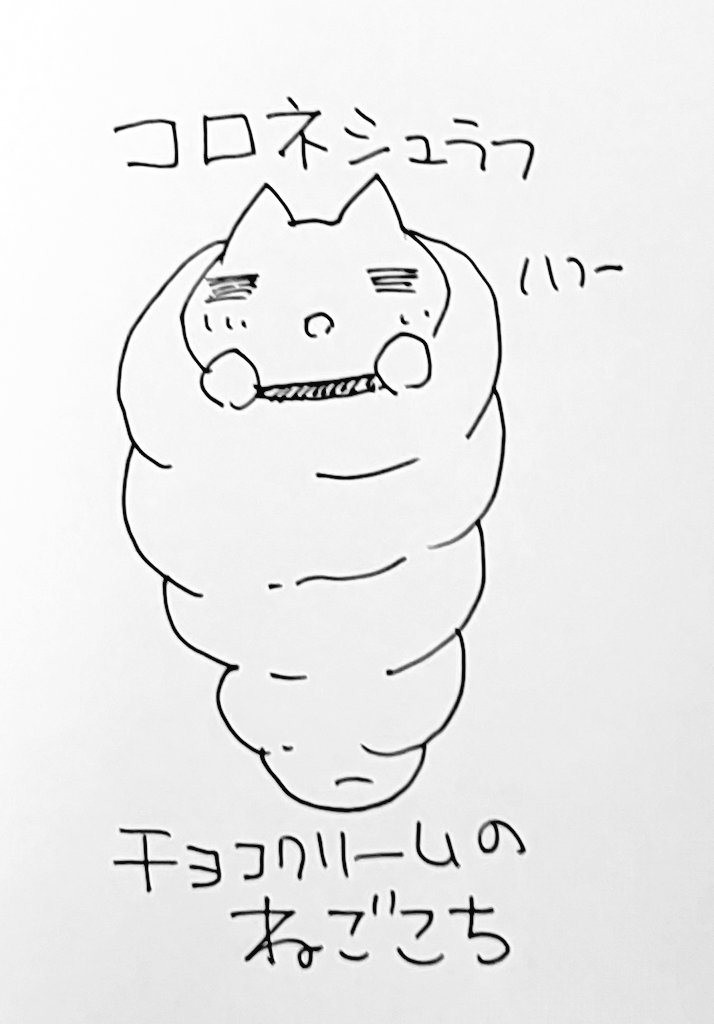 コロネシュラフ
ハフー
チョコクリームの
ねごこち